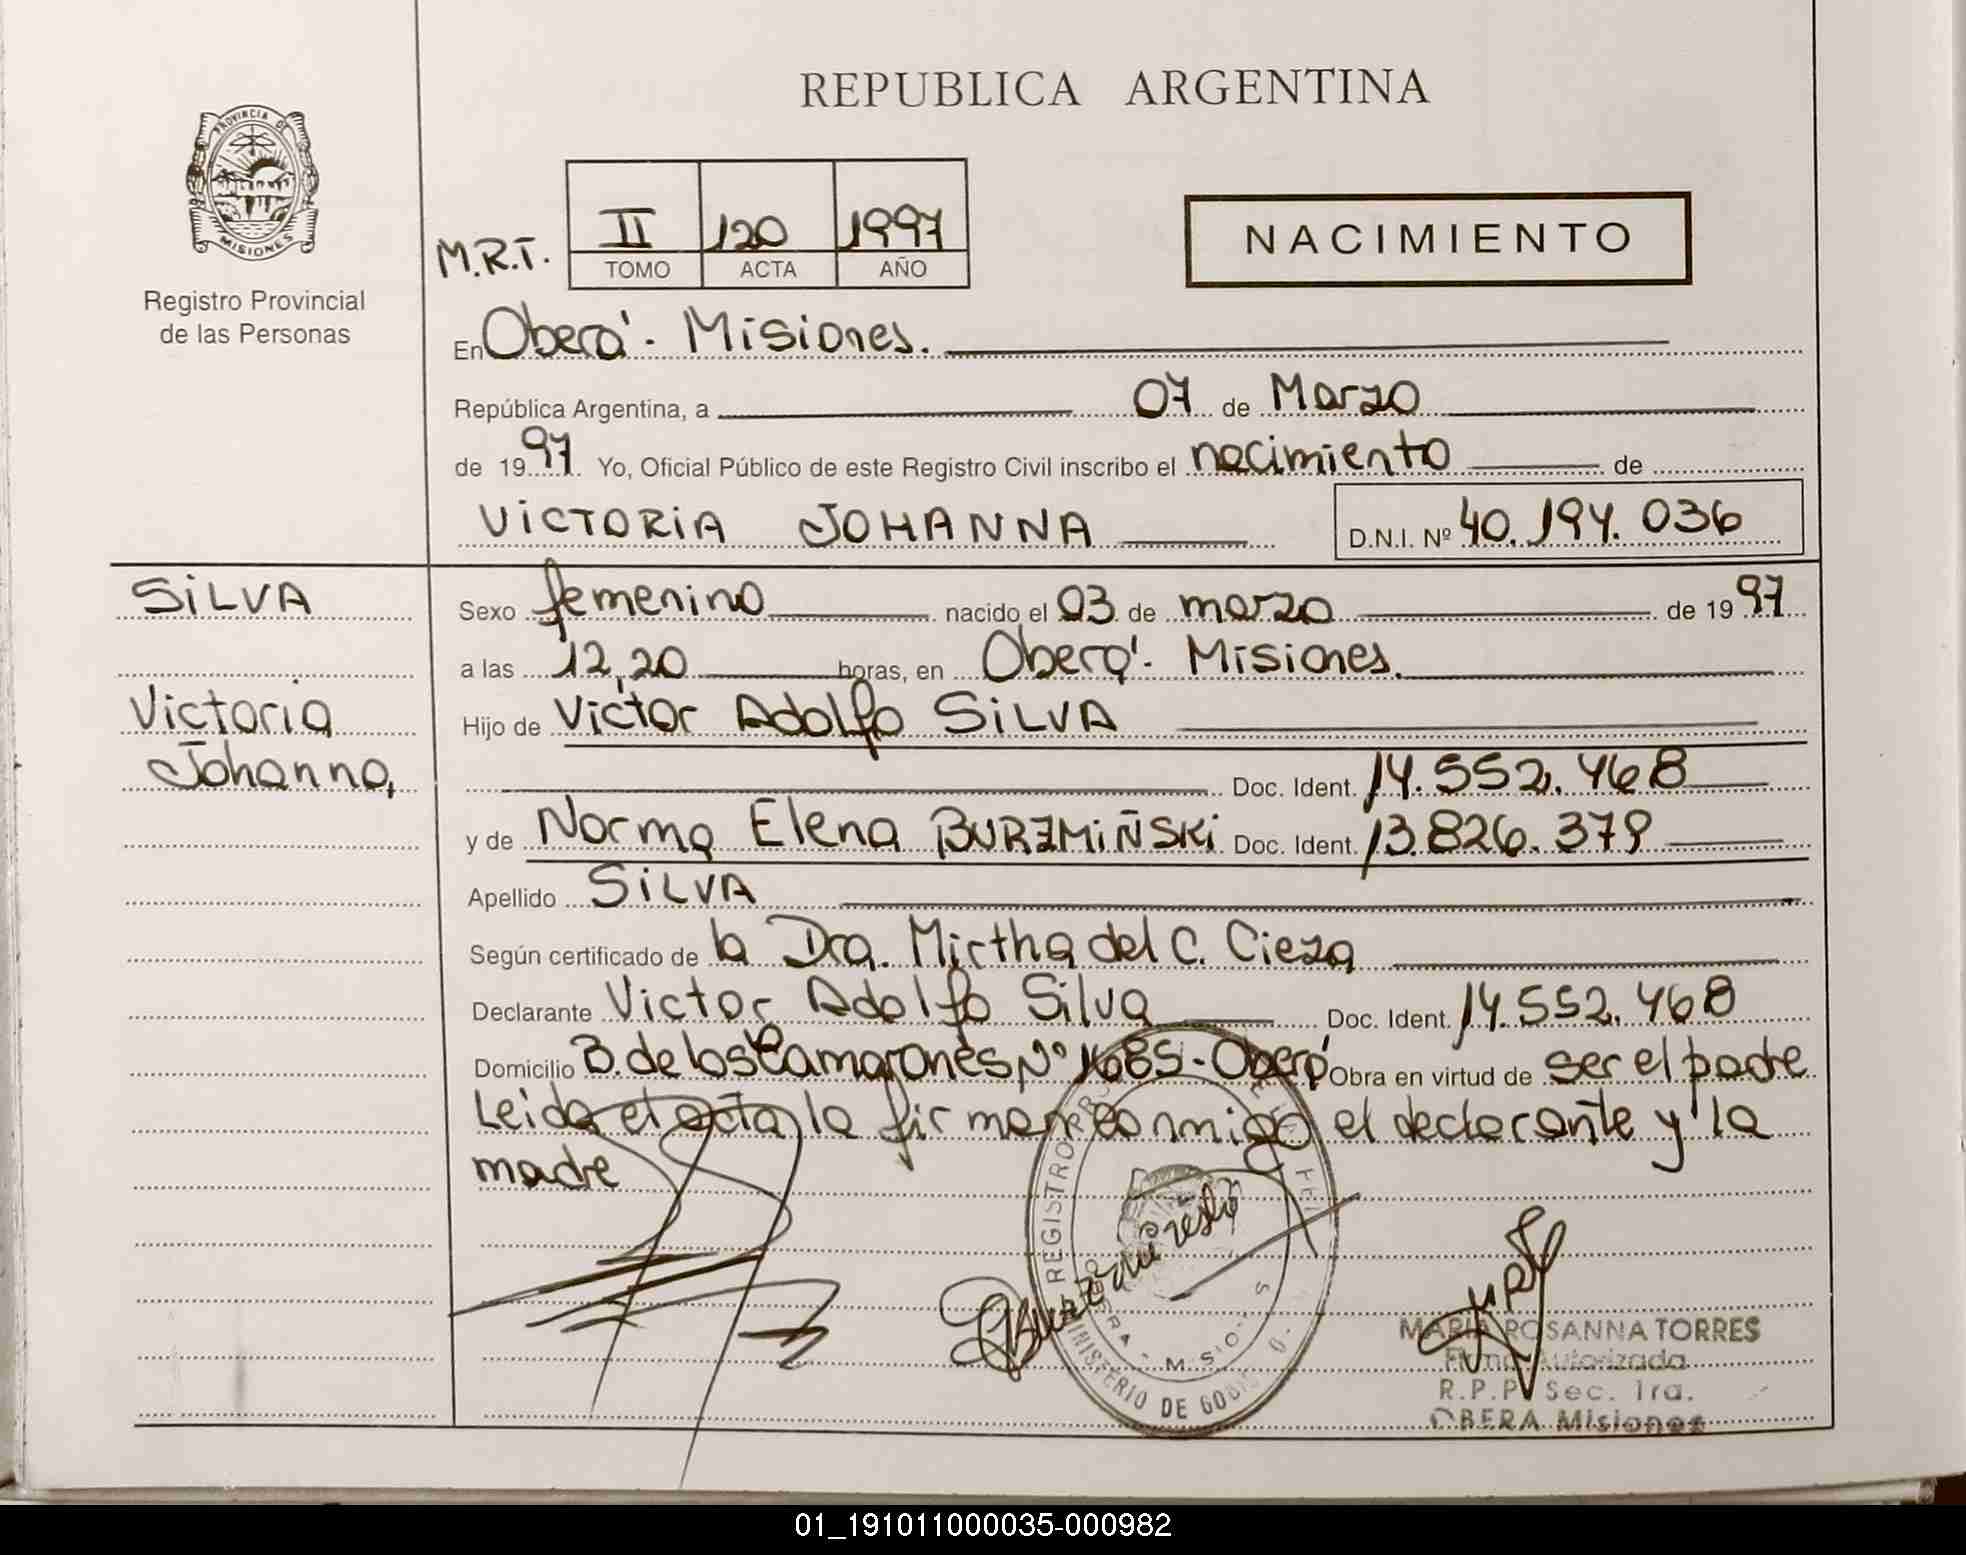 REPUBLICA ARGENTINA
PROVINCIA DE
MISIONES
Registro Provincial
de las Personas
M.R.T.
II 120 1997
TOMO ACTA AÑO
NACIMIENTO
En Oberá - Misiones.
República Argentina, a 07 de Marzo
de 1997. Yo, Oficial Público de este Registro Civil inscribo el nacimiento de
VICTORIA JOHANNA D.N.I. Nº 40.194.036
SILVA
Victoria
Johanna,
Sexo femenino nacido el 03 de marzo de 1997
a las 12,20 horas, en Oberá - Misiones.
Hijo de Victor Adolfo SILVA
Doc. Ident. 14.552.468
y de Norma Elena BURZMIÑSKI Doc. Ident. 13.826.379
Apellido SILVA
Según certificado de la Dra. Mirtha del C. Cieza
Declarante Victor Adolfo Silva Doc. Ident. 14.552.468
Domicilio B. de los Camarones Nº 1685 - Oberá Obra en virtud de ser el padre
Leida el acta la firman conmigo el declarante y la
madre
REGISTRO
MINISTERIO DE
MARIA ROSANNA TORRES
Firma Autorizada
R.P.P. Sec. 1ra.
OBERA Misiones
01_191011000035-000982